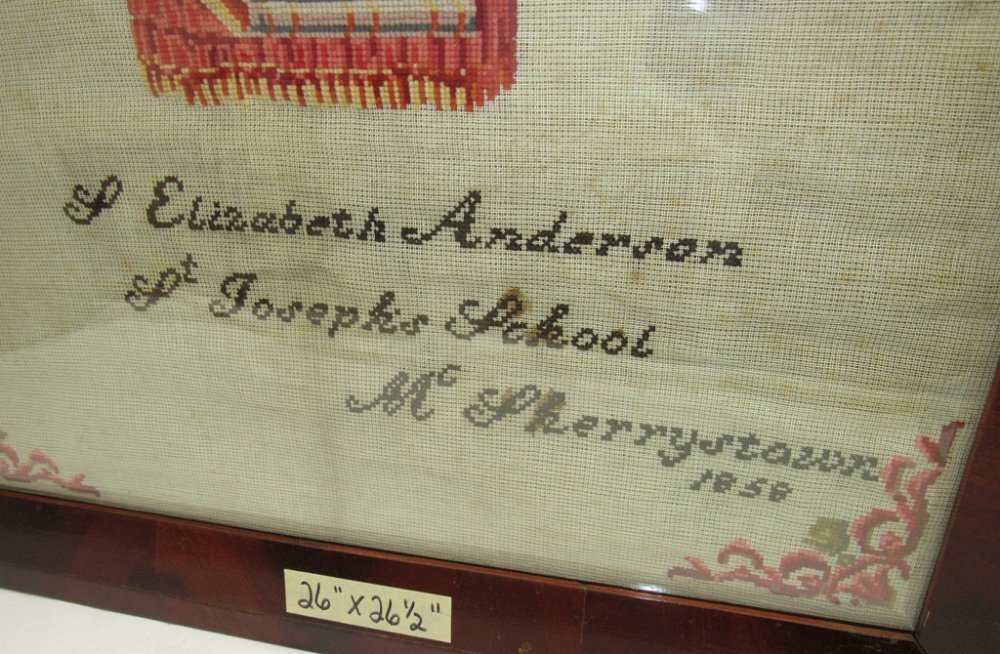 S Elizabeth Anderson
St Joseph's School
Mc Sherrystown
1858
26" x 26 1/2"